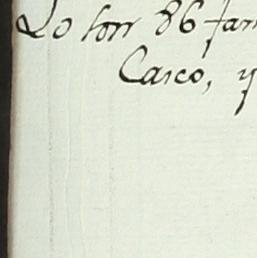 Lo son 86 fan
Casco, y